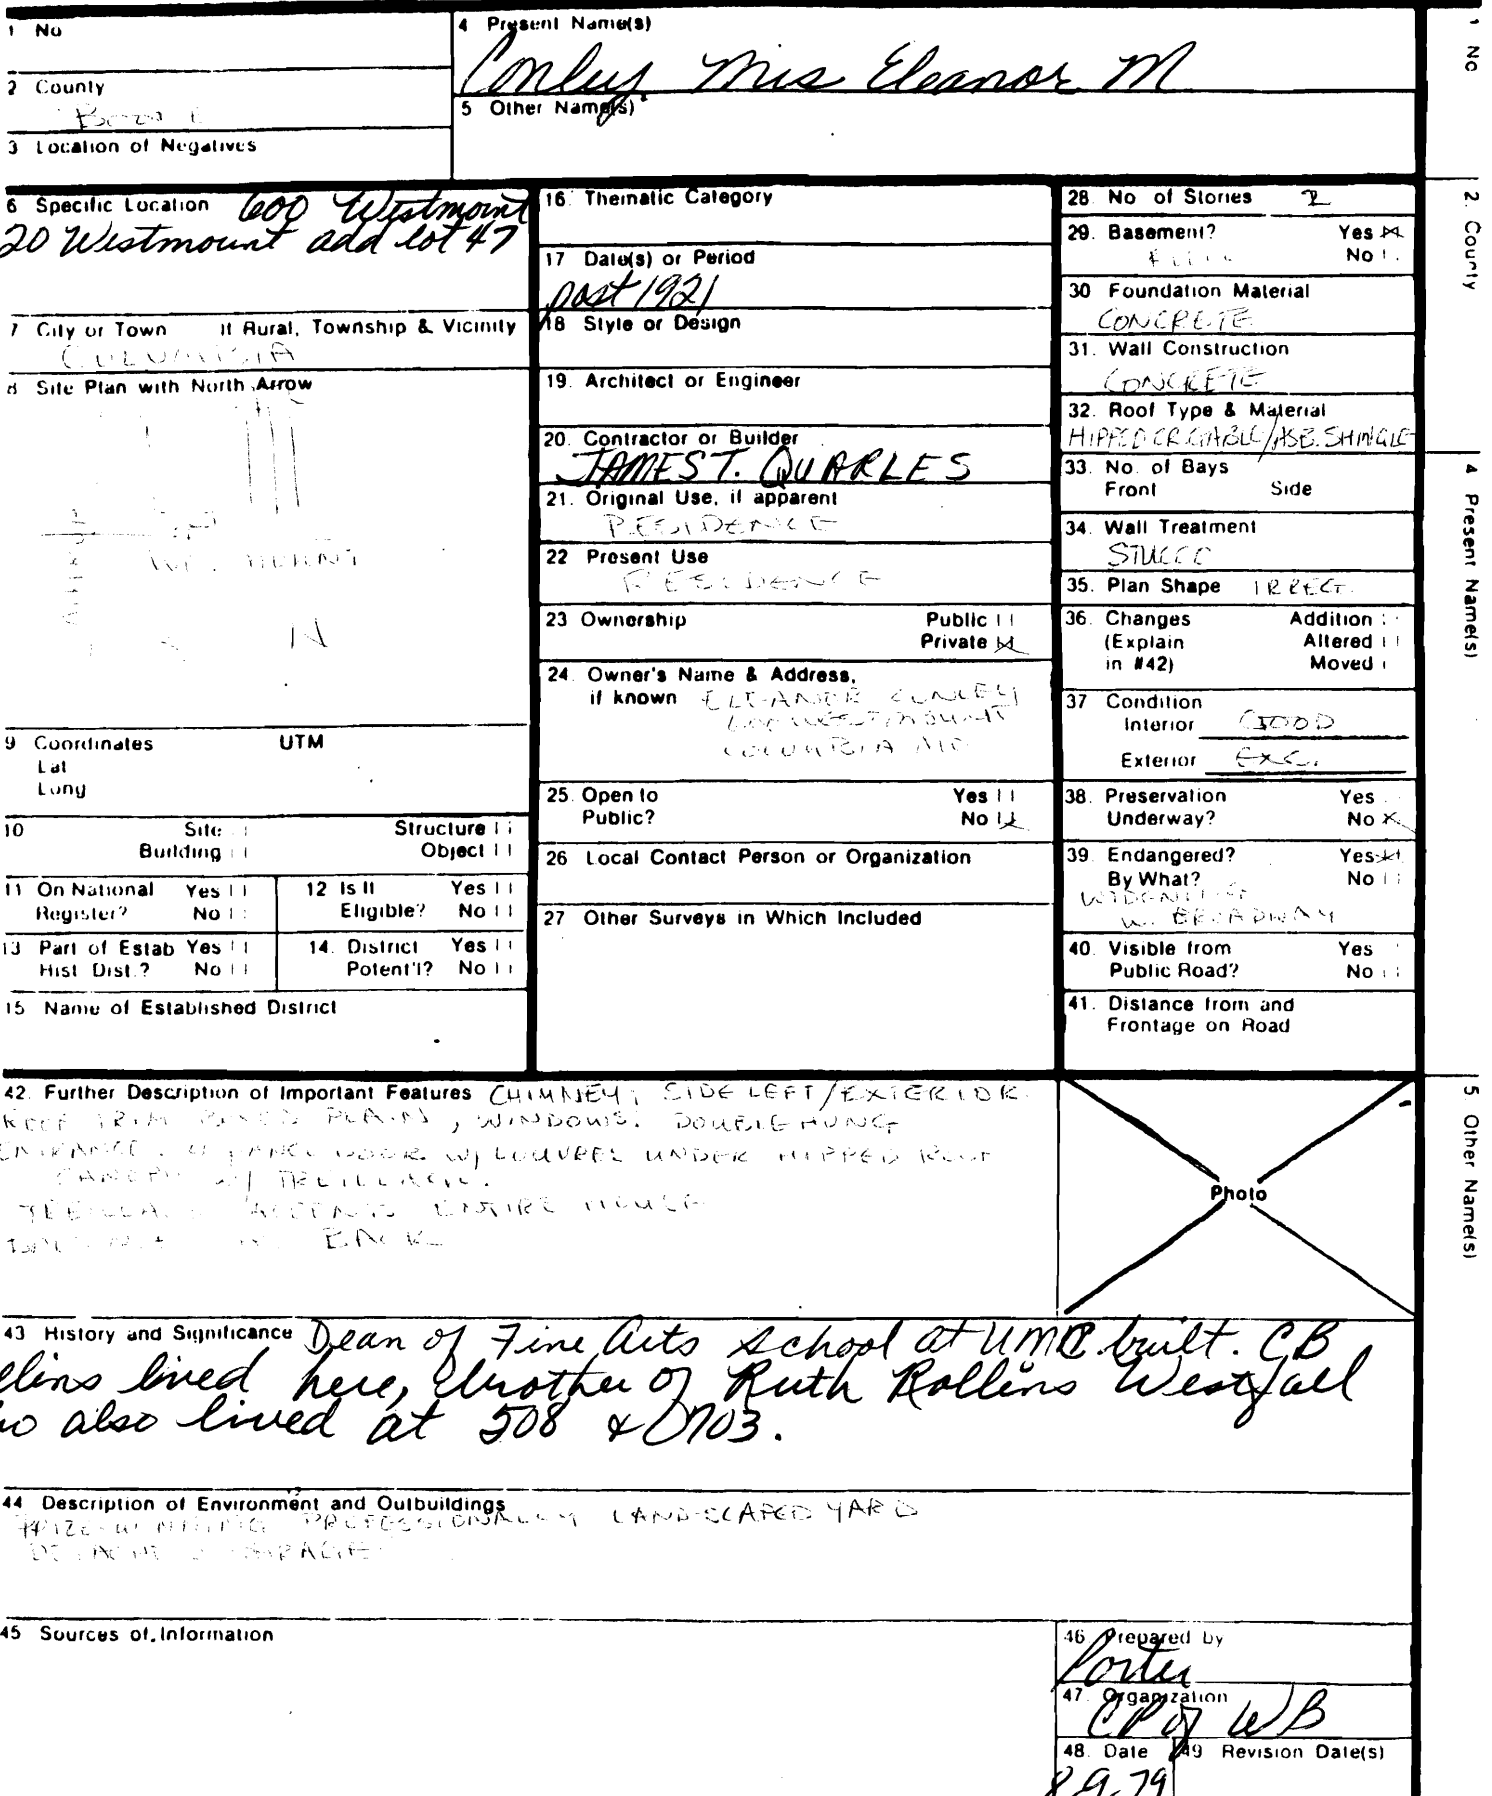 1 No
4 Present Name(s)
Conley, Mrs Eleanor M
2 County
5 Other Name(s)
3 Location of Negatives
6 Specific Location 600 Westmount
20 Westmount add lot 47
7 City or Town If Rural, Township & Vicinity
COLUMBIA
8 Site Plan with North Arrow
N
9 Coordinates UTM
Lat
Long
10 Site Structure
Building Object
11 On National Register? Yes No
12 Is It Eligible? Yes No
13 Part of Estab Hist Dist.? Yes No
14. District Potent'l? Yes No
15 Name of Established District
16. Thematic Category
17 Date(s) or Period
post 1921
18 Style or Design
19. Architect or Engineer
20. Contractor or Builder
JAMES T. QUARLES
21. Original Use, if apparent
RESIDENCE
22 Present Use
RESIDENCE
23 Ownership Public
Private
24. Owner's Name & Address,
if known ELEANOR CONLEY
600 WESTMOUNT
COLUMBIA MO
25. Open to Yes
Public? No
26 Local Contact Person or Organization
27 Other Surveys in Which Included
28. No of Stories 2
29. Basement? Yes
No
30 Foundation Material
CONCRETE
31. Wall Construction
CONCRETE
32. Roof Type & Material
HIPPED CR. GABLE/ASB. SHINGLE
33. No. of Bays
Front Side
34. Wall Treatment
STUCCO
35. Plan Shape IRREG.
36. Changes Addition
(Explain Altered
in #42) Moved
37 Condition
Interior GOOD
Exterior EXC.
38. Preservation Yes
Underway? No
39. Endangered? Yes
By What? No
WIDENING
W. BROADWAY
40. Visible from Yes
Public Road? No
41. Distance from and
Frontage on Road
42. Further Description of Important Features CHIMNEY; SIDE LEFT/EXTERIOR.
ROOF TRIM BOXED PLAIN, WINDOWS: DOUBLE HUNG
DOOR W/ LOUVRES UNDER HIPPED ROOF
CANOPY W/
ACCENTS ENTIRE HOUSE
BACK
Photo
43 History and Significance Dean of Fine Arts school at UMC built. CB
lived here, brother of Ruth Rollins Westfall
also lived at 508 & 703.
44 Description of Environment and Outbuildings
PRIZE-WINNING PROFESSIONALLY LANDSCAPED YARD
DETACHED GARAGE
45 Sources of Information
46 Prepared by
Porter
47. Organization
CP of WB
48. Date 49 Revision Date(s)
8.9.79
1 No
2 County
4 Present Name(s)
5 Other Name(s)